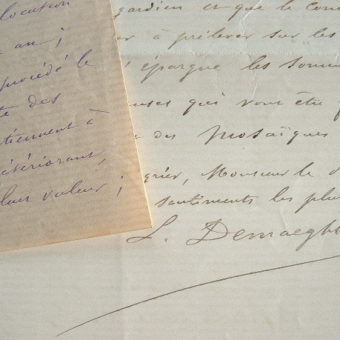 location
an ;
procédé le
te des
tiement à
détériorant,
leur valeur ;
gardien et que le com
er à prélever sur les
épargne les somm
uses qui vont être f
e des mosaïques
gréer, Monsieur le d
sentiments les plu
L. Demaeght